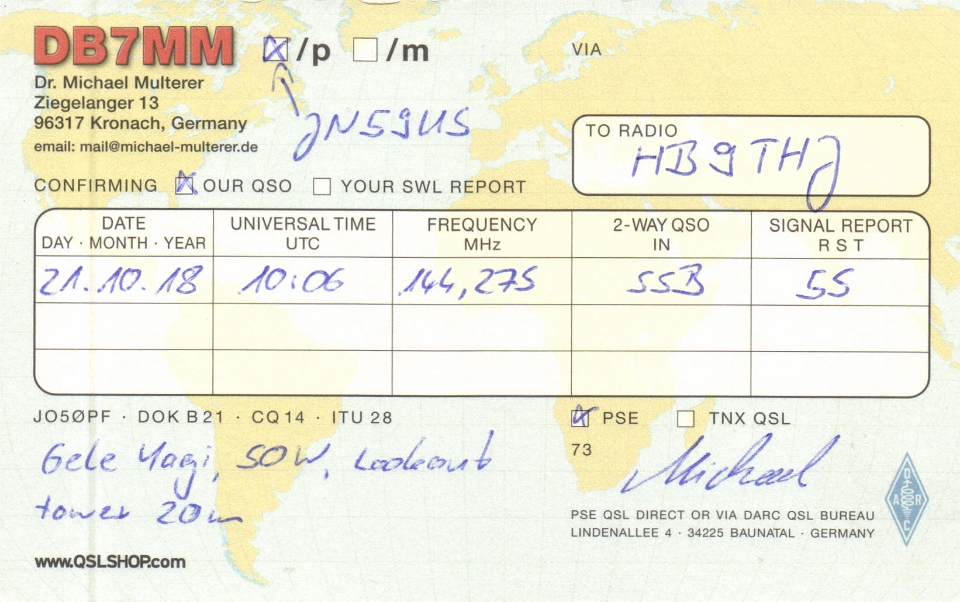 DB7MM /p /m
VIA
Dr. Michael Multerer
Ziegelanger 13
96317 Kronach, Germany
email: mail@michael-multerer.de
JN59US
TO RADIO
HB9THJ
CONFIRMING OUR QSO YOUR SWL REPORT
DATE UNIVERSAL TIME FREQUENCY 2-WAY QSO SIGNAL REPORT
DAY · MONTH · YEAR UTC MHz IN R S T
21.10.18 10:06 144,275 SSB 55
JO5ØPF · DOK B21 · CQ 14 · ITU 28
PSE TNX QSL
Yagi, 50W, Lookout
tower 20m
73 Michael
PSE QSL DIRECT OR VIA DARC QSL BUREAU
LINDENALLEE 4 · 34225 BAUNATAL · GERMANY
DARC
www.QSLSHOP.com